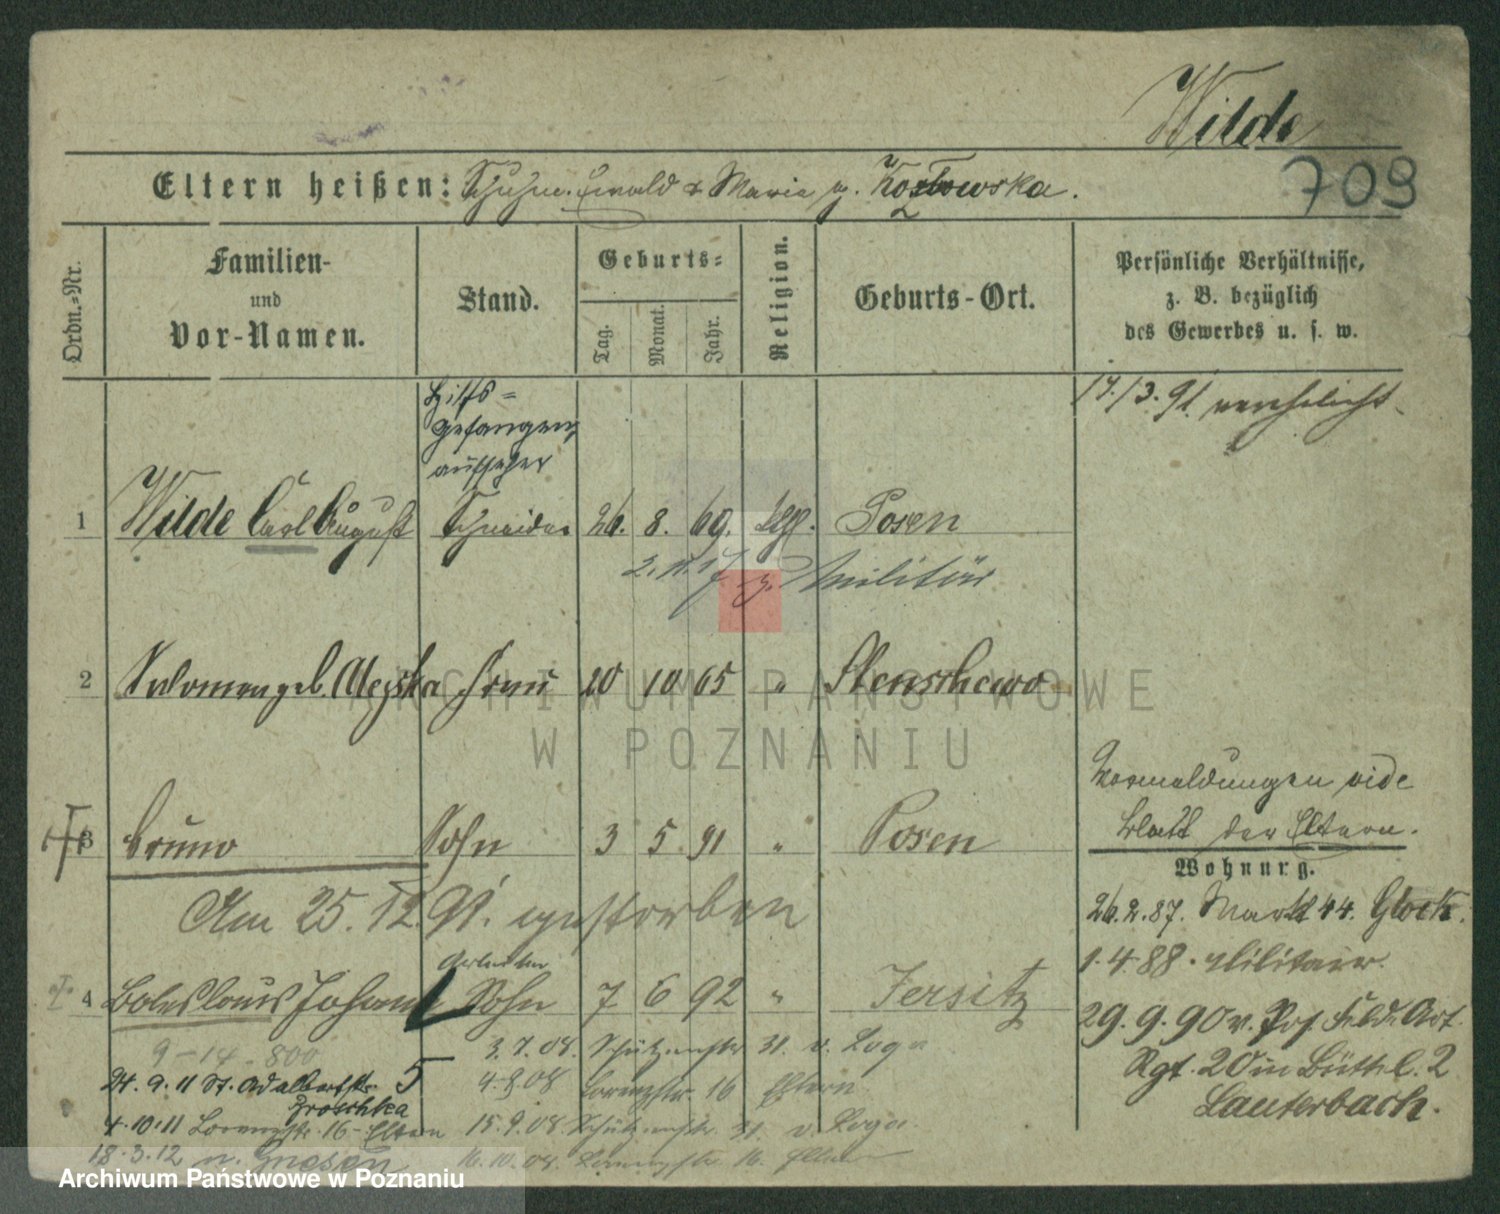 Wilde
709
Eltern heißen: Schuhm. Ewald & Maria g. Kozlowska.
Ordn.-Nr.
Familien- und Vor-Namen.
Stand.
Geburts-
Tag. Monat. Jahr.
Religion.
Geburts-Ort.
Persönliche Verhältnisse,
z. B. bezüglich
des Gewerbes u. s. w.
Hilfs-
gefangen
aufseher
17./3. 91. verehelicht.
1 Wilde Carl August Schneider 26. 8. 69. Posen
z. Militär
2 geb. Frau 20 10 65 " Stenschewo
3 Bruno Sohn 3 5 91 " Posen
Am 25. 12. 91. gestorben
Vormeldungen vide
Blatt der Eltern.
Wohnung.
26.2.87. Markt 44. Glock.
1.4.88. Militair.
29.9.90 v. Pos. Feld. Art.
Rgt. 20 in Büttl. 2
Lauterbach.
4 Boleslaus Johann Sohn 7 6 92 " Jersitz
9-14. 800
24.9.11 St. Adalbertstr. 5
Zroschka
4.10.11 Lorenzstr. 16 - Eltern
18.3.12 n. Gnesen
3.7.08. Schützenstr. 31. v. Loga
4.8.08 Lorenzstr. 16 Eltern
15.9.08. Schützenstr. 31 v. Loga.
16.10.08. Lorenzstr. 16. Eltern
ARCHIWUM PAŃSTWOWE
W POZNANIU
Archiwum Państwowe w Poznaniu